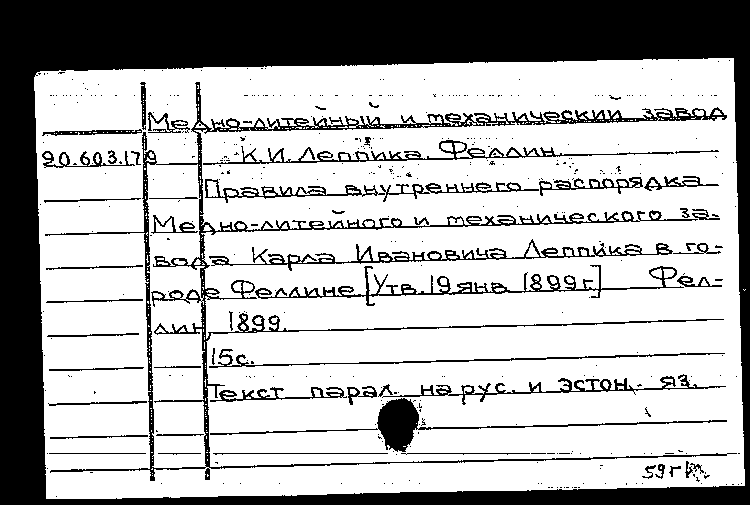 Медно-литейный и механический завод
90.603.179 К.И. Леппика. Феллин.
Правила внутреннего распорядка
Медно-литейного и механического за-
вода Карла Ивановича Леппика в го-
роде Феллине [Утв. 19 янв. 1899 г.] Фел-
лин, 1899.
15с.
Текст парал. на рус. и эстон. яз.
59г